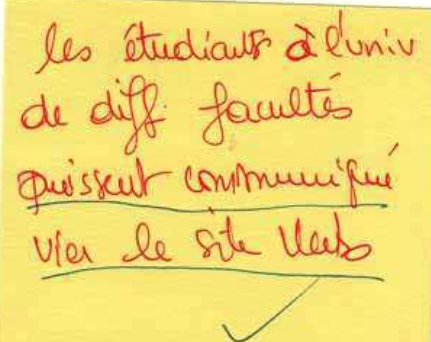 les étudiants à l'univ
de diff. facultés
puissent communiqué
vier le site Web